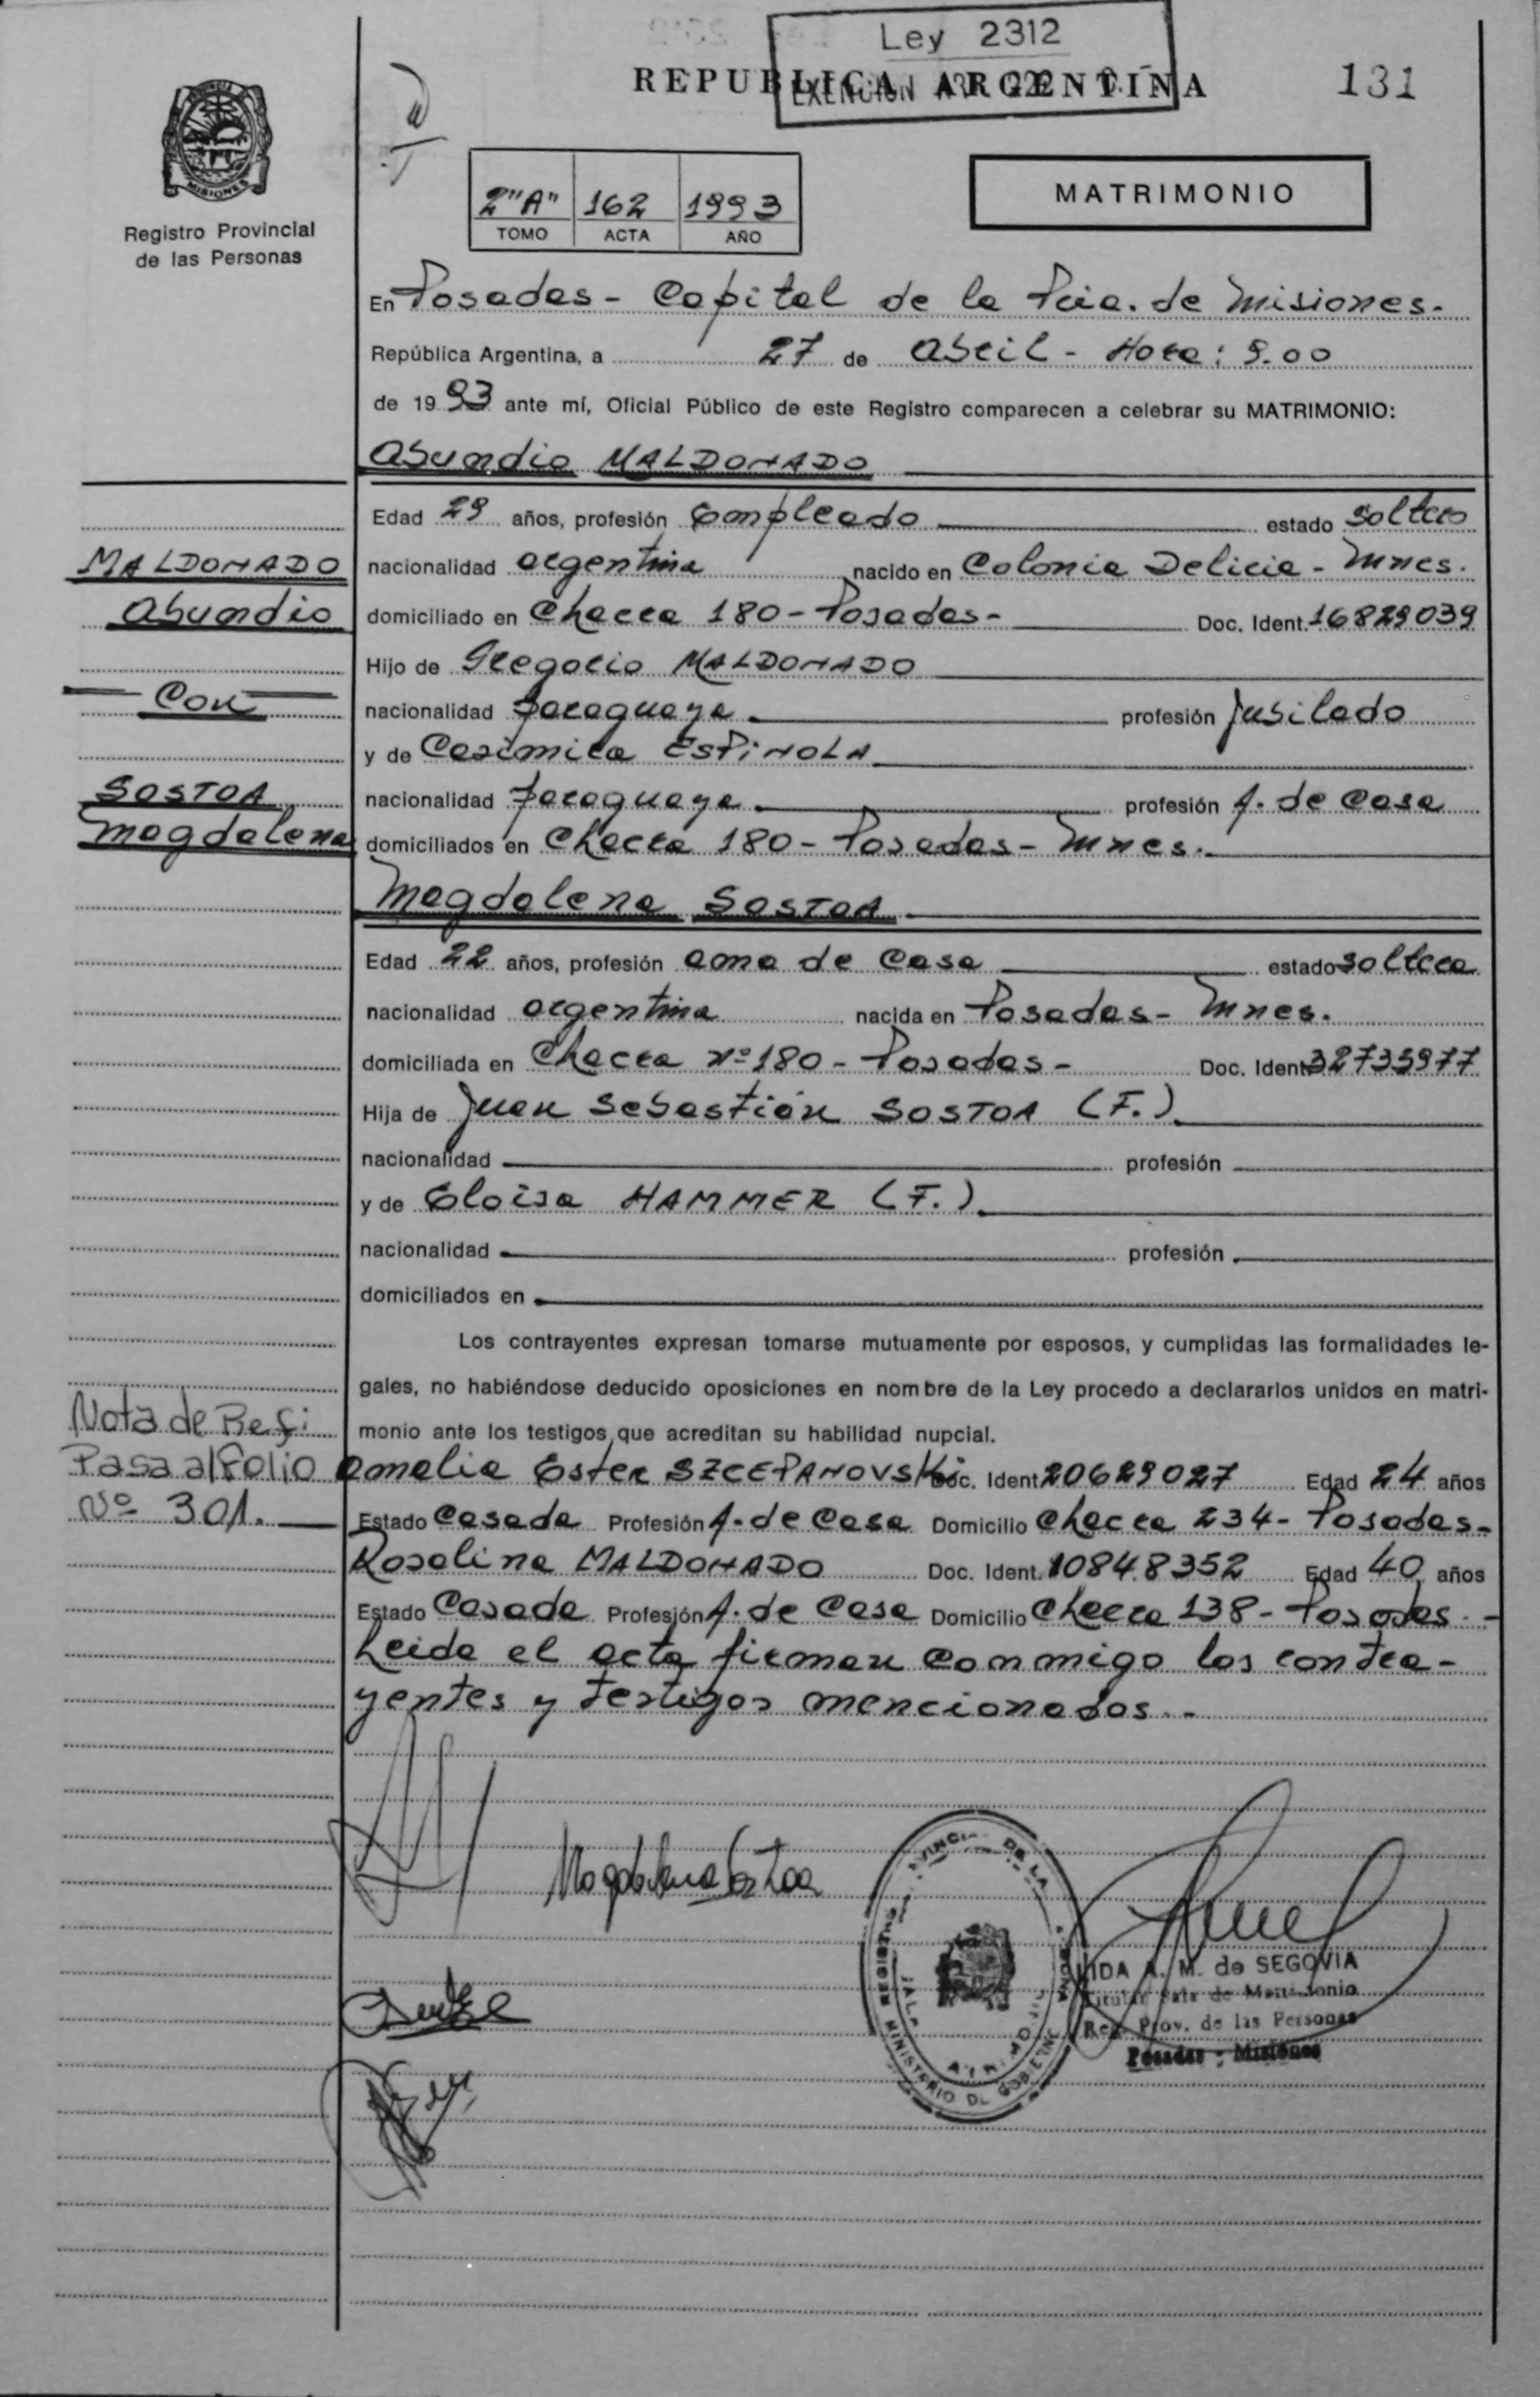 Ley 2312
REPUBLICA ARGENTINA
131
MISIONES
Registro Provincial
de las Personas
2"A" 162 1993
TOMO ACTA AÑO
MATRIMONIO
En Posadas - Capital de la Pcia. de Misiones.
República Argentina, a 27 de abril - Hora: 9.00
de 1993 ante mí, Oficial Público de este Registro comparecen a celebrar su MATRIMONIO:
Abundio MALDONADO
Edad 29 años, profesión Empleado estado soltero
MALDONADO
nacionalidad argentina nacido en Colonia Delicia - Mnes.
Abundio
domiciliado en Chacra 180 - Posadas - Doc. Ident. 16829039
Hijo de Gregorio MALDONADO
Con
nacionalidad paraguaya profesión Jubilado
y de Casimira ESPINOLA
SOSTOA
nacionalidad paraguaya profesión A. de Casa
Magdalena
domiciliados en Chacra 180 - Posadas - Mnes.
Magdalena SOSTOA
Edad 22 años, profesión ama de Casa estado soltera
nacionalidad argentina nacida en Posadas - Mnes.
domiciliada en Chacra Nº 180 - Posadas - Doc. Ident. 32735977
Hija de Juan Sebastián SOSTOA (F.)
nacionalidad profesión
y de Eloisa HAMMER (F.)
nacionalidad profesión
domiciliados en
Los contrayentes expresan tomarse mutuamente por esposos, y cumplidas las formalidades le-
gales, no habiéndose deducido oposiciones en nombre de la Ley procedo a declararlos unidos en matri-
monio ante los testigos que acreditan su habilidad nupcial.
Nota de Ref:
Pasa al Folio
Nº 301.
Amalia Ester SZCEPANOVSKI Doc. Ident 20629027 Edad 24 años
Estado Casada Profesión A. de Casa Domicilio Chacra 234 - Posadas -
Rosalina MALDONADO Doc. Ident. 10848352 Edad 40 años
Estado Casada Profesión A. de Casa Domicilio Chacra 138 - Posadas -
Leida el acta firman conmigo los contra-
yentes y testigos mencionados.-
Magdalena Sostoa
A. M. de SEGOVIA
Titular Sala de Matrimonio
Reg. Prov. de las Personas
Posadas - Misiones
MINISTERIO DE GOBIERNO